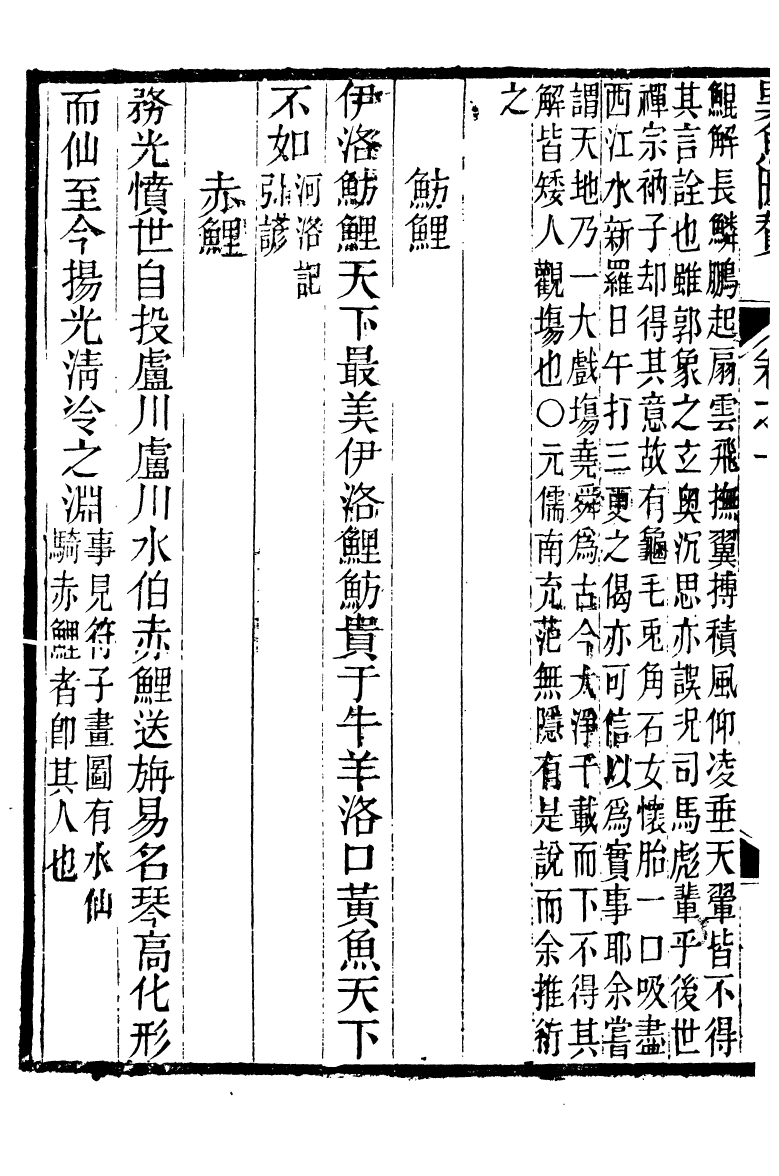 異魚圖贊 卷之一
鯤解長鱗鵬起扇雲飛撫翼摶積風仰凌垂天翬皆不得
其言詮也雖郭象之玄奥沉思亦誤况司馬彪輩乎後世
禪宗衲子却得其意故有龜毛兎角石女懷胎一口吸盡
西江水新羅日午打三更之偈亦可信以爲實事耶余嘗
謂天地乃一大戲塲堯舜爲古今大淨千載而下不得其
解皆矮人觀塲也○元儒南充范無隱有是說而余推衍
之
魴鯉
伊洛魴鯉天下最美伊洛鯉魴貴于牛羊洛口黃魚天下
不如河洛記
引諺
赤鯉
務光憤世自投盧川盧川水伯赤鯉送旃易名琴高化形
而仙至今揚光淸泠之淵事見符子畫圖有水仙
騎赤鯉者卽其人也